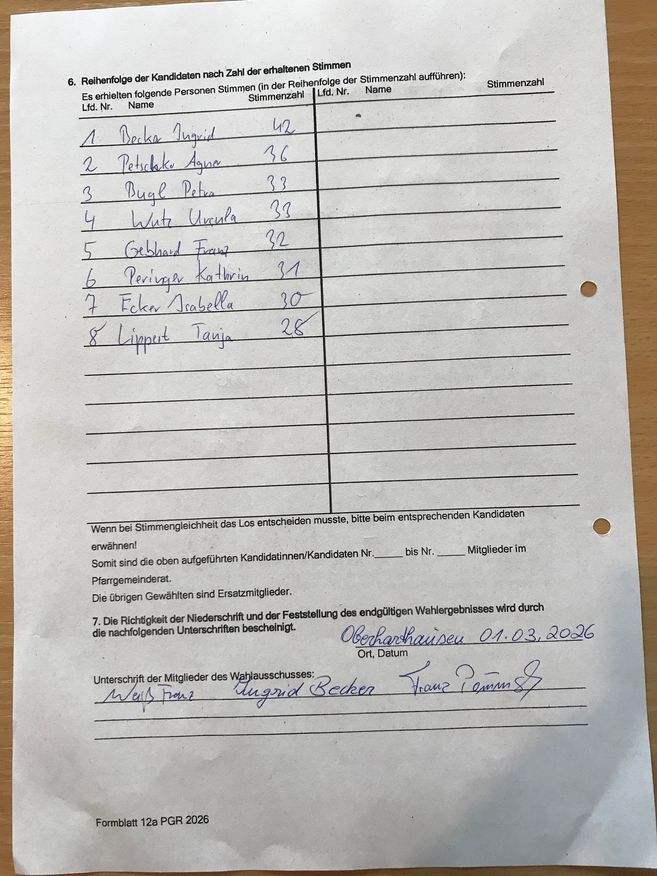 6. Reihenfolge der Kandidaten nach Zahl der erhaltenen Stimmen
Es erhielten folgende Personen Stimmen (in der Reihenfolge der Stimmenzahl aufführen):
Lfd. Nr. Name Stimmenzahl Lfd. Nr. Name Stimmenzahl
1 Becker Ingrid 42
2 Petschko Agnes 36
3 Bugl Petra 33
4 Wutz Ursula 33
5 Gebhard Franz 32
6 Peringer Kathrin 31
7 Ecker Isabella 30
8 Lippert Tanja 28
Wenn bei Stimmengleichheit das Los entscheiden musste, bitte beim entsprechenden Kandidaten
erwähnen!
Somit sind die oben aufgeführten Kandidatinnen/Kandidaten Nr._____ bis Nr. _____ Mitglieder im
Pfarrgemeinderat.
Die übrigen Gewählten sind Ersatzmitglieder.
7. Die Richtigkeit der Niederschrift und der Feststellung des endgültigen Wahlergebnisses wird durch
die nachfolgenden Unterschriften bescheinigt.
Oberharthausen 01.03.2026
Ort, Datum
Unterschrift der Mitglieder des Wahlausschusses:
Weiß Franz Ingrid Becker Franz
Formblatt 12a PGR 2026